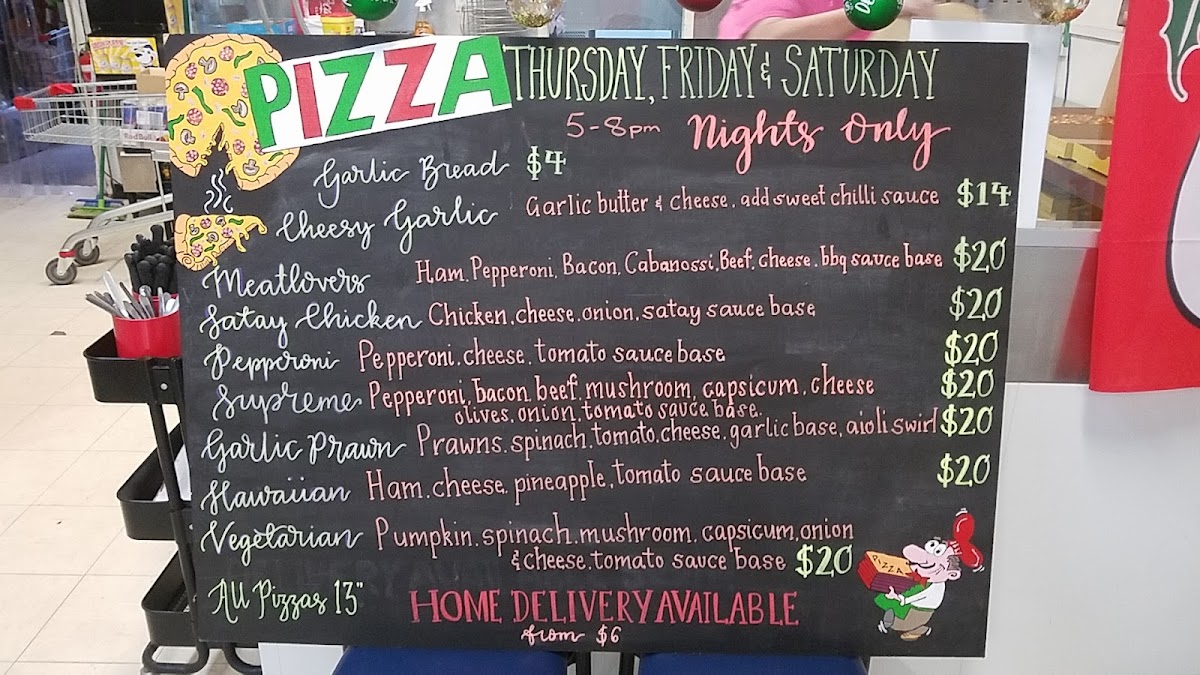 PIZZA THURSDAY, FRIDAY & SATURDAY
5-8pm Nights Only
Garlic Bread $4
Cheesy Garlic Garlic butter & cheese. add sweet chilli sauce $14
Meatlovers Ham. Pepperoni, Bacon, Cabanossi, Beef, cheese. bbq sauce base $20
Satay Chicken Chicken. cheese. onion. satay sauce base $20
Pepperoni Pepperoni. cheese. tomato sauce base $20
Supreme Pepperoni, bacon, beef, mushroom, capsicum, cheese $20
olives. onion. tomato sauce base.
Garlic Prawn Prawns. spinach. tomato. cheese. garlic base, aioli swirl $20
Hawaiian Ham. cheese. pineapple, tomato sauce base $20
Vegetarian Pumpkin. spinach. mushroom. capsicum, onion
& cheese. tomato sauce base $20
PIZZA
All Pizzas 13" HOME DELIVERY AVAILABLE
from $6